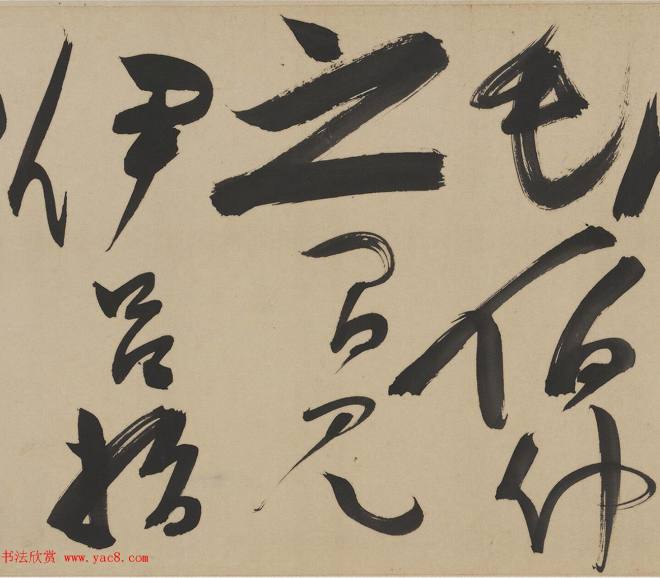 毛伯仲
之間見
伊呂指
书法欣赏 www.yac8.com